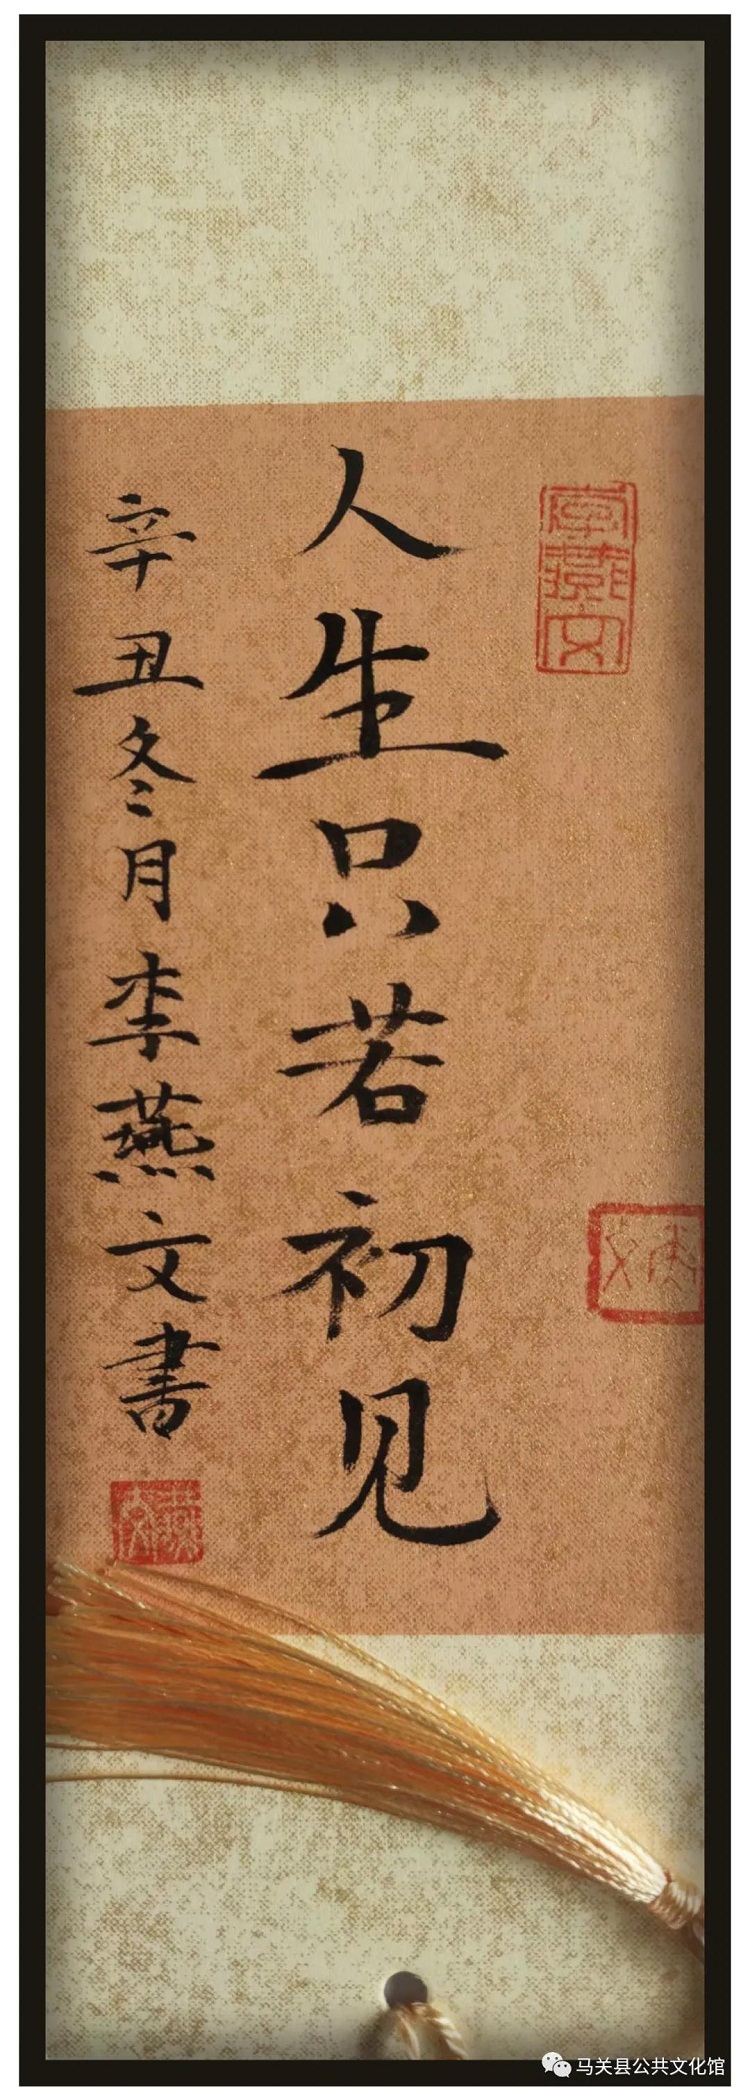 李燕文
人生只若初见
辛丑冬月李燕文書
燕文
马关县公共文化馆